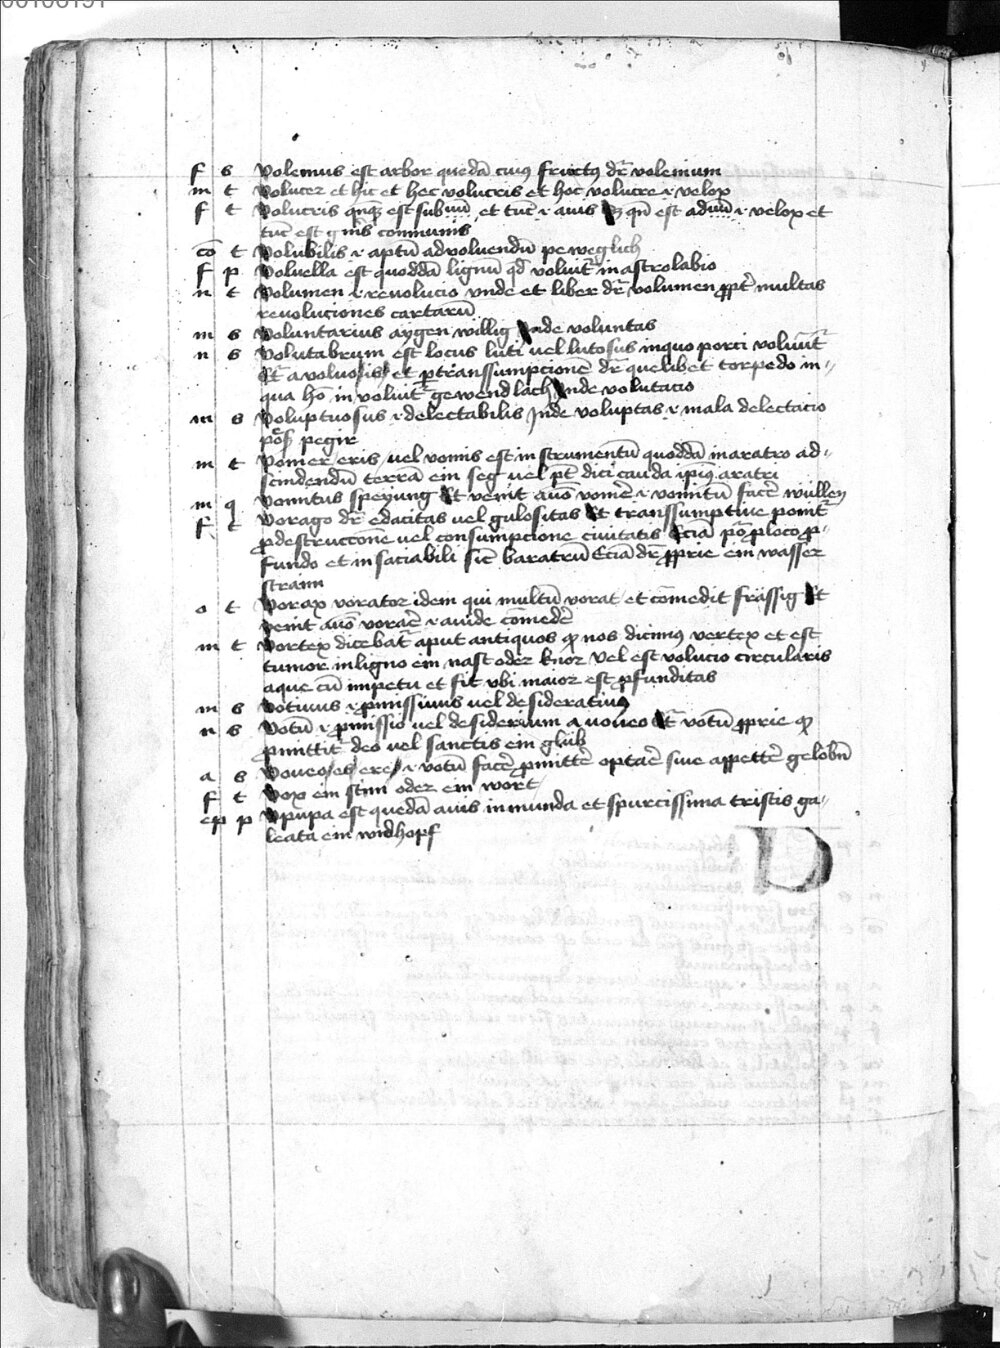 00106191
f s Volemus est arbor quedā cuiꝰ fructꝰ dr̄ volemum
m t Volucer et hic et hec volucris et hoc volucre ⁊ velox
f t Volucris qn̄qꝫ est subiūm et tūc ⁊ auis Sꝫ qn̄ est adiūm ⁊ velox et
tūc est gn̄is communis
cō t Volubilis ⁊ aptū ad voluendū peweglich
f p Voluella est quoddā lignū qd̄ voluit᷑ in astrolabio
n t Volumen ⁊ reuolucio vnde et liber dr̄ volumen ꝓpt̄ multas
reuoluciones cartarū
m s Voluntarius aygen willig Inde voluntas
n s Volutabrum est locus luti uel lutosus in quo porci voluūt᷑
Et᷑ a voluo/is/ et ꝑ transsumpcionē dr̄ quelibet torpedo in-
qua hō in voluit᷑ gewend lach Inde volutacio
m s Voluptuosus ⁊ delectabilis Inde voluptas ⁊ mala delectacio
pōß pegir
m t Vomer/eris/ uel vomis est instrumentū quoddā in aratro ad-
scindendū terrā ein seg uel pt̄ dici cauda ipīꝰ aratri
m q Vomitus speyung Et venit a uō vomē̄ ⁊ vomitū facē̄ wüllen
f t Vorago dr̄ edacitas uel gulositas Et transsumptiue ponit᷑
ꝓ destruccione uel consumpcione ciuitatis Eciā pō ꝓ loco ꝓ-
fundo et insaciabili sic̄ baratrū Eciā dr̄ ꝓprie ein wasser
straim
o t Vorax vorator idem qui multū vorat et cōmedit frässig Et
venit a uō vorarē ⁊ auide cōmedē̄
m t Vortex dicebat᷑ aput antiquos qͦ nos dicimꝰ vertex et est
tumor in ligno ein nast oder knor Vel est volucio circularis
aque cū impetu et fit vbi maior est ꝓfunditas
m s Votiuus ⁊ ꝓmissiuus uel desideratiuꝰ
n s Votū ⁊ ꝓmissio uel desiderium a voueo Et᷑ votū ꝓprie qͦ
ꝓmittit᷑ deo uel sanctis ein glüb
a s Voueo/es/ere/ ⁊ votū facē̄ ꝓmittē̄ optaē̄ siue appettē̄ gelobn̄
f t Vox ein stim oder ein wort
ep p Vpupa est quedā auis inmunda et spurcissima tristis ga-
leata ein widhopf